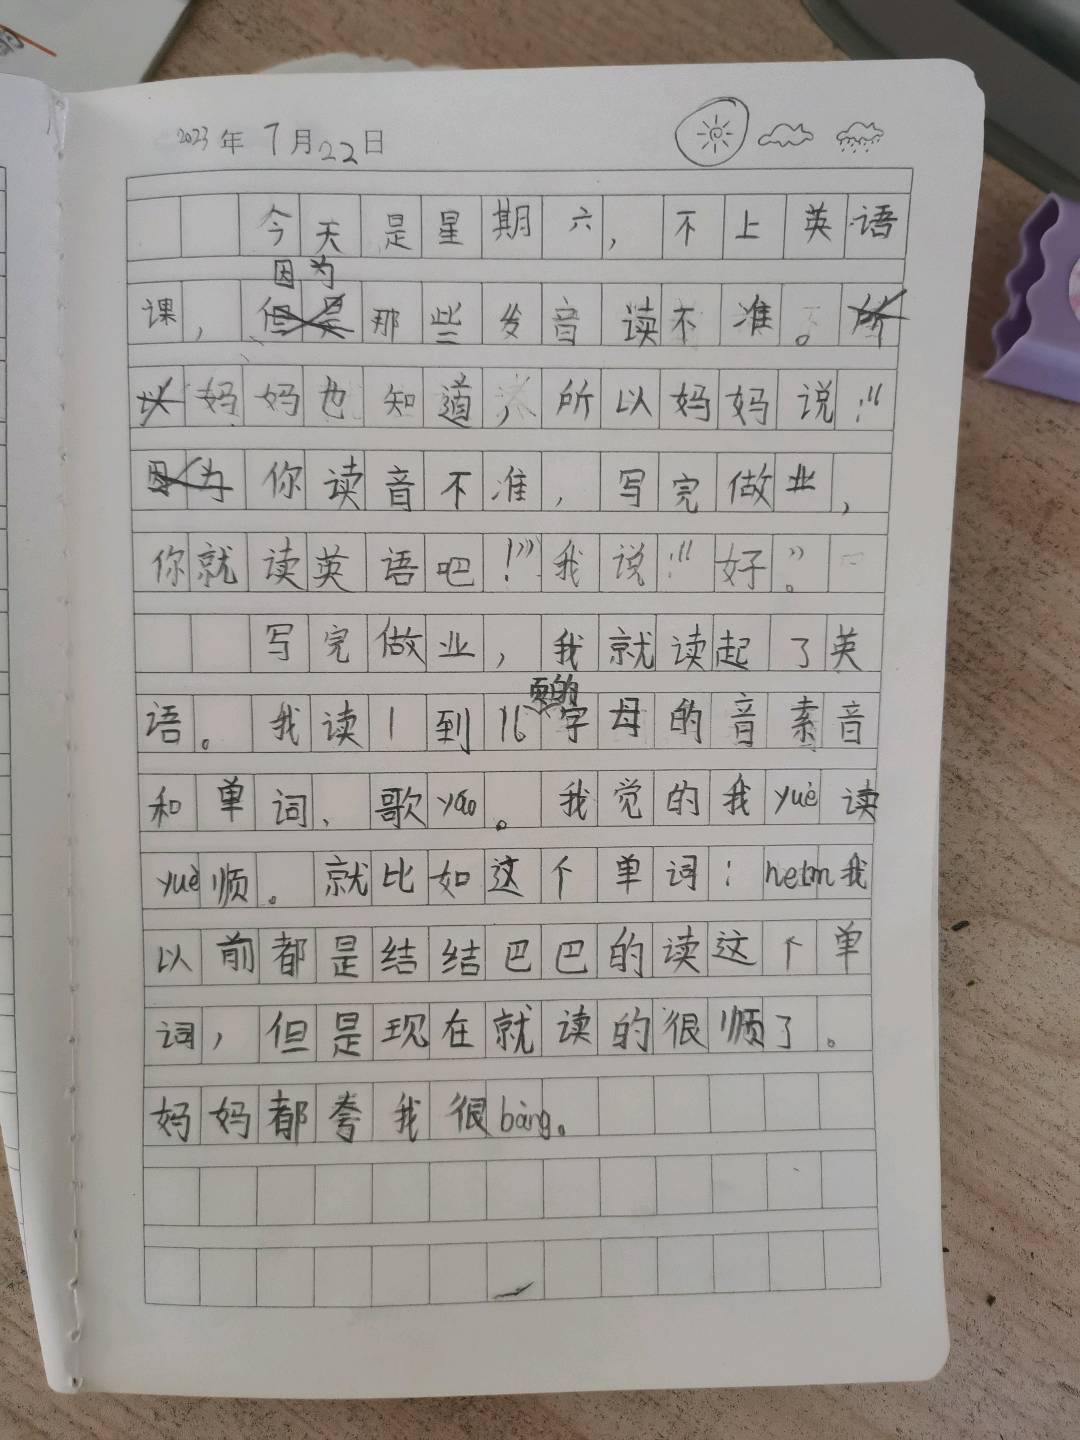 2023年7月22日
今天是星期六，不上英语
因为
课，但是那些发音读不准。所
以妈妈也知道，所以妈妈说：“
因为你读音不准，写完做业，
你就读英语吧！”我说：“好”。
写完做业，我就读起了英
语。我读1到16字母的音素音
和单词、歌yáo。我觉的我yuè读
yuè顺。就比如这个单词：netm我
以前都是结结巴巴的读这个单
词，但是现在就读的很顺了。
妈妈都夸我很bàng。